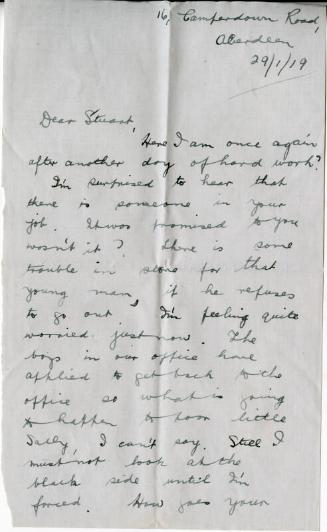 16, Camperdown Road,
Aberdeen
29/1/19
Dear Stuart,
Here I am once again
after another day of hard work?
I'm surprised to hear that
there is someone in your
job. It was promised to you
wasn't it? There is some
trouble in store for that
young man, if he refuses
to go out. I'm feeling quite
worried just now. The
boys in our office have
applied to get back to the
office so what is going
to happen to poor little
Sally, I can't say. Still I
must not look at the
black side until I'm
forced. How goes your